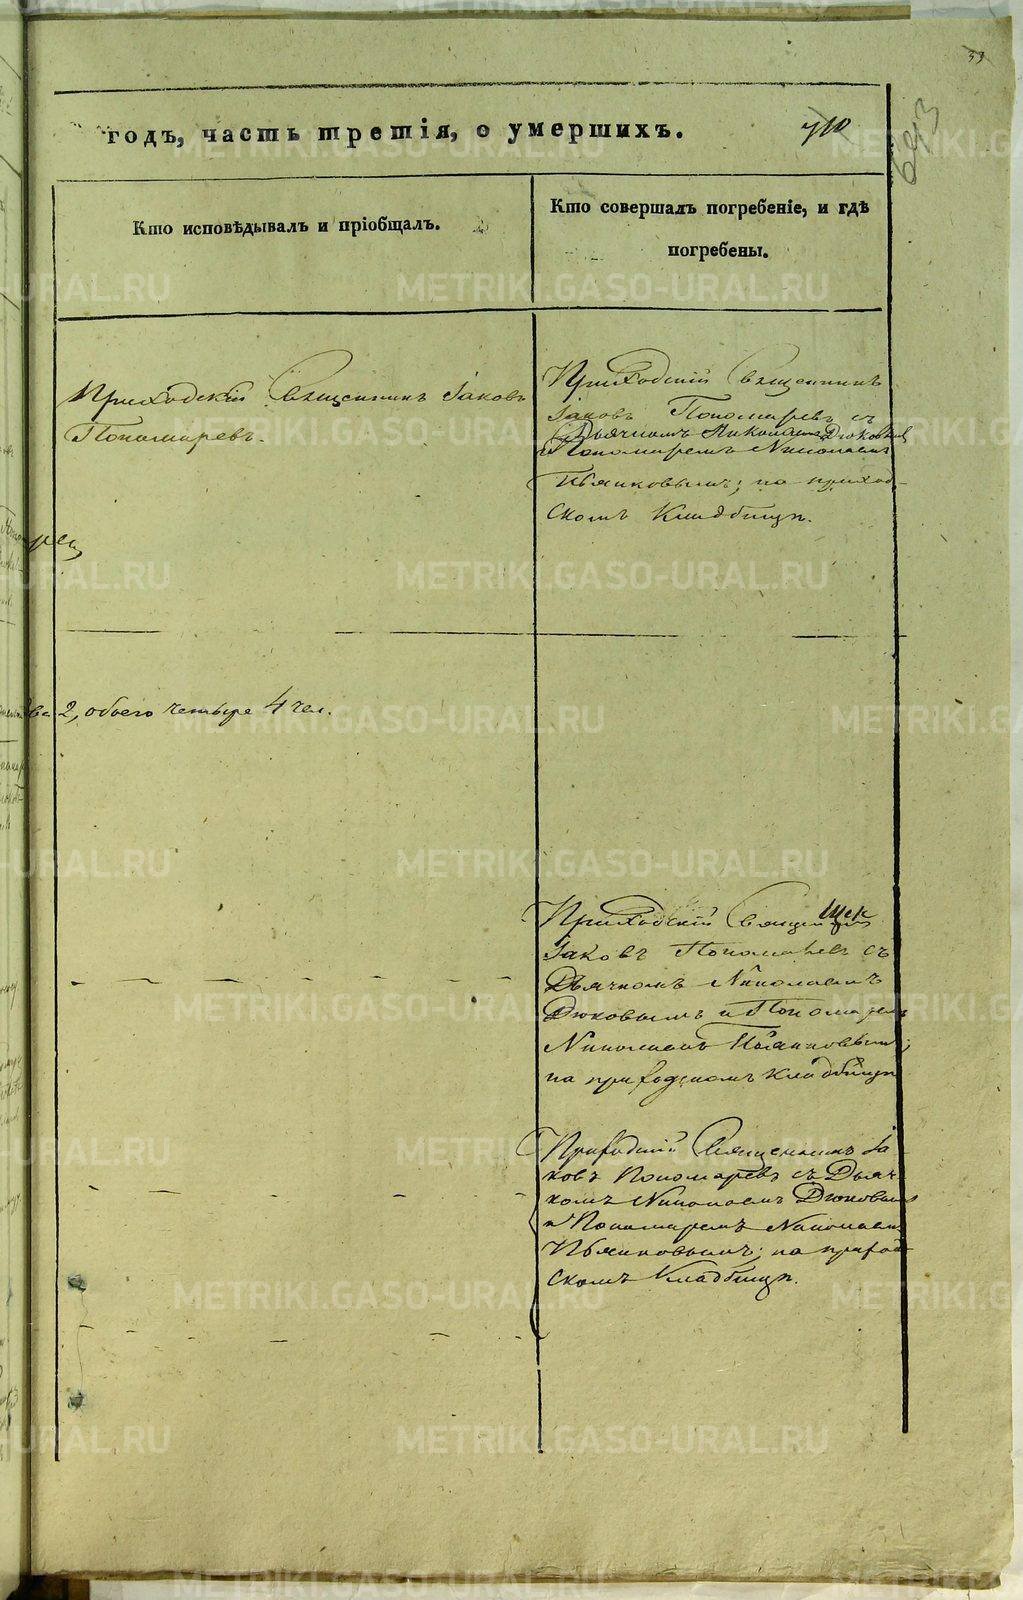 39
годъ, часть третія, о умершихъ.
710
693
Кто исповѣдывалъ и пріобщалъ.
Кто совершалъ погребеніе, и гдѣ
погребены.
Приходскій Священникъ Іаковъ
Пономаревъ.
Приходскій Священникъ
Іаковъ Пономаревъ съ
Дьячкомъ Николаемъ Дюковымъ
и Пономаремъ Николаемъ
Пьянковымъ; на приход-
скомъ Кладбищѣ.
2, обоего четыре 4 чел.
Приходскій
Іаковъ Пономаревъ съ
Дьячкомъ Николаемъ
Дюковымъ и Пономаремъ
Николаемъ Пьянковымъ;
на приходскомъ кладбищѣ
Приходскій Священникъ Іа
ковъ Пономаревъ съ Дьяч
комъ Николаемъ Дюковымъ
и Пономаремъ Николаемъ
Пьянковымъ; на приход-
скомъ Кладбищѣ.
METRIKI.GASO-URAL.RU